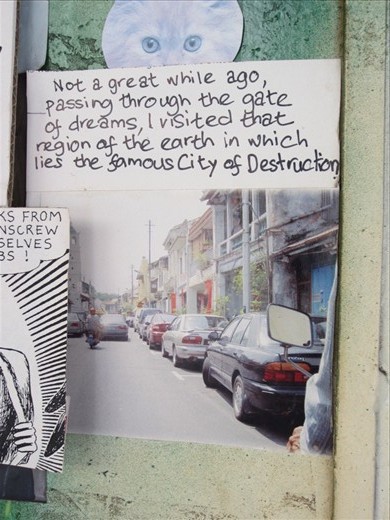 Not a great while ago,
passing through the gate
of dreams, I visited that
region of the earth in which
lies the famous City of Destruction
KS FROM
NSCREW
SELVES
BS !